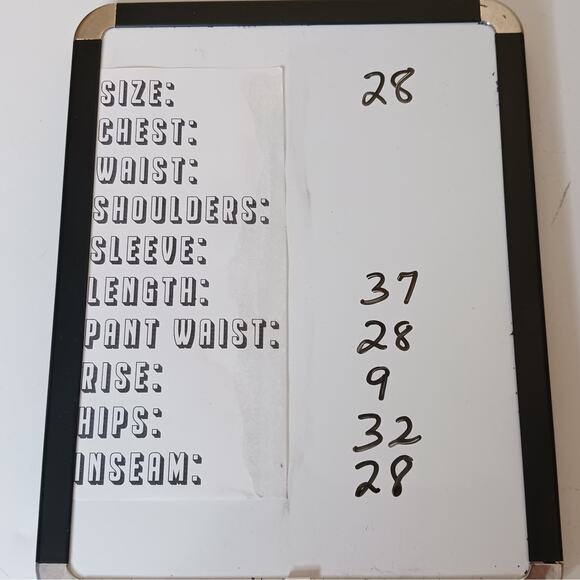 SIZE: 28
CHEST:
WAIST:
SHOULDERS:
SLEEVE:
LENGTH: 37
PANT WAIST: 28
RISE: 9
HIPS: 32
INSEAM: 28